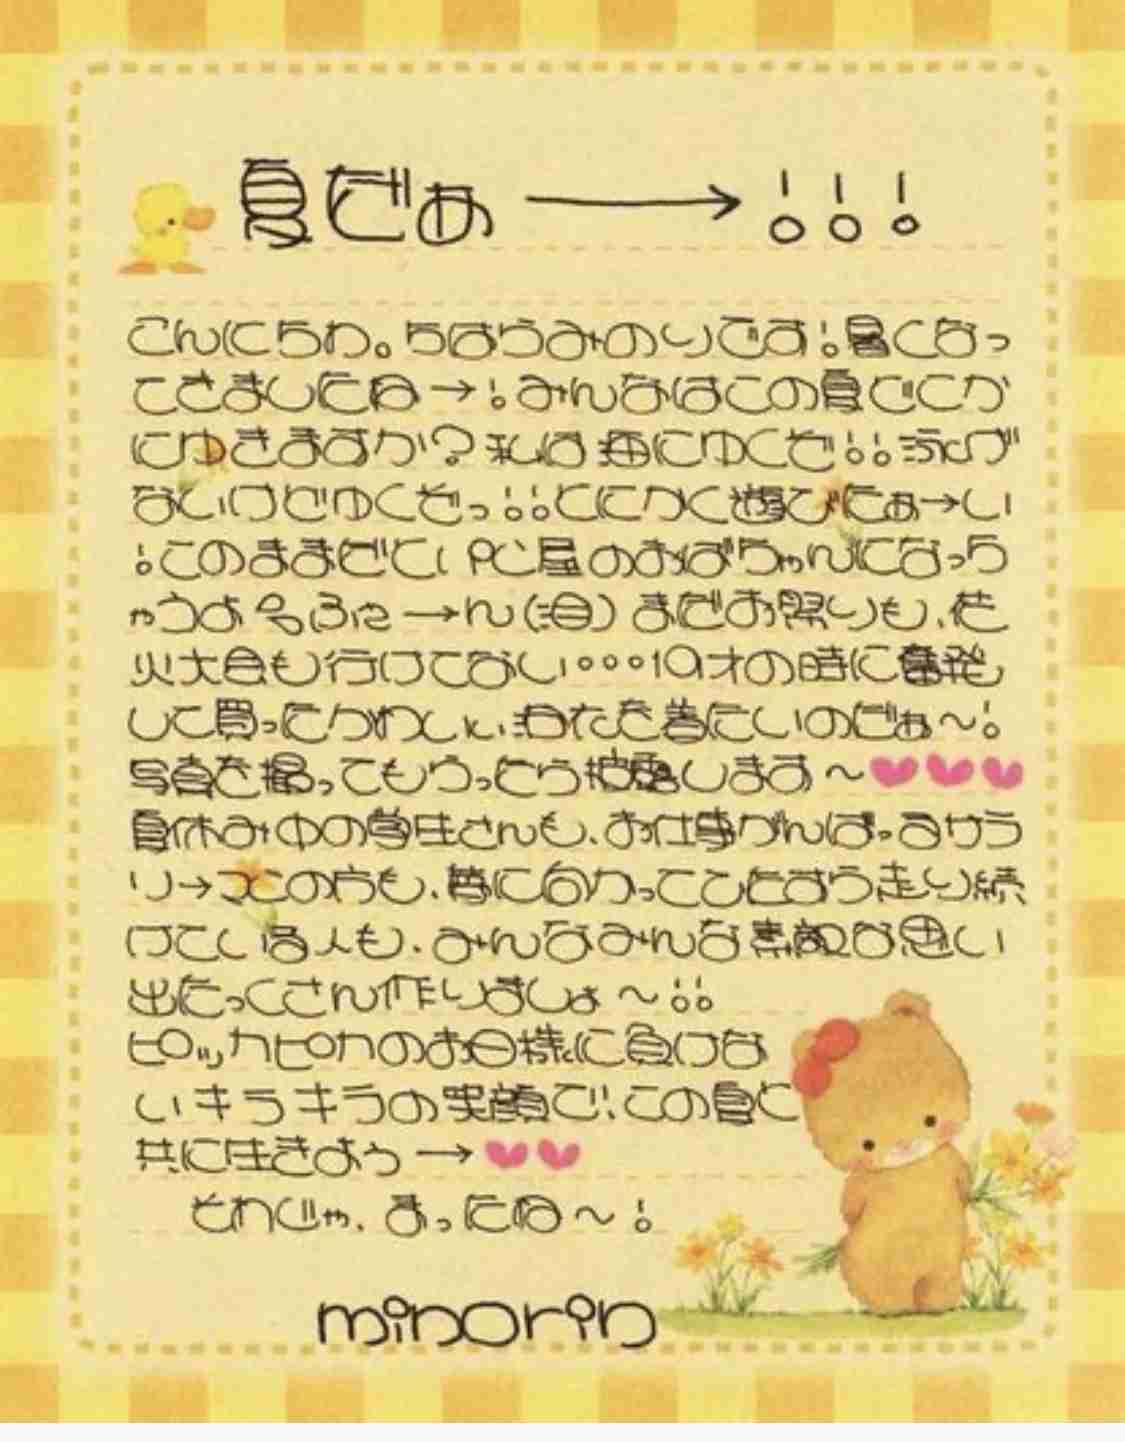 夏だぁ→!!!
こんにちわ。ちはらみのりです!暑くなっ
てきましたね→!みんなはこの夏どこか
にゆきますか?私は海にゆくぞ!!泳げ
ないけどゆくぞっ!!とにかく遊びたぁ→い
!このままだと、PC屋のおばちゃんになっち
ゃうよ ふに→ん(泪)まだお祭りも、花
火大会も行けてない…19才の時に奮発
して買ったかわいい浴衣を着たいのだぁ〜!
写真を撮ってもらったら披露します〜♥♥♥
夏休み中の学生さんも、お仕事がんばってるサラ
リ→マンの方も、夢に向かってひたすら走り続
けている人も、みんなみんな素敵な思い
出たっくさん作りましょ〜!!
ピッカピカのお日様に負けな
いキラキラの笑顔で、この夏と
共に生きよう→♥♥
それじゃ、まったね〜!
minorin